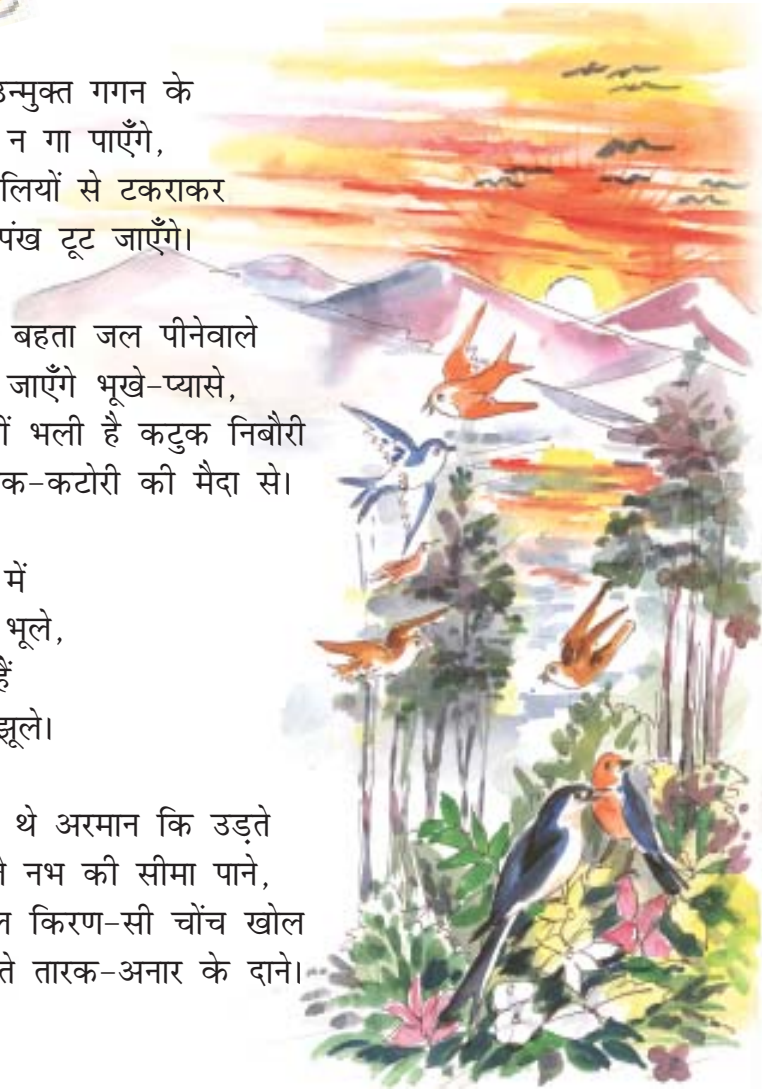 उन्मुक्त गगन के
न गा पाएँगे,
लियों से टकराकर
पंख टूट जाएँगे।
बहता जल पीनेवाले
जाएँगे भूखे-प्यासे,
भली है कटुक निबौरी
क-कटोरी की मैदा से।
में
भूले,
हैं
झूले।
थे अरमान कि उड़ते
नभ की सीमा पाने,
किरण-सी चोंच खोल
तारक-अनार के दाने।